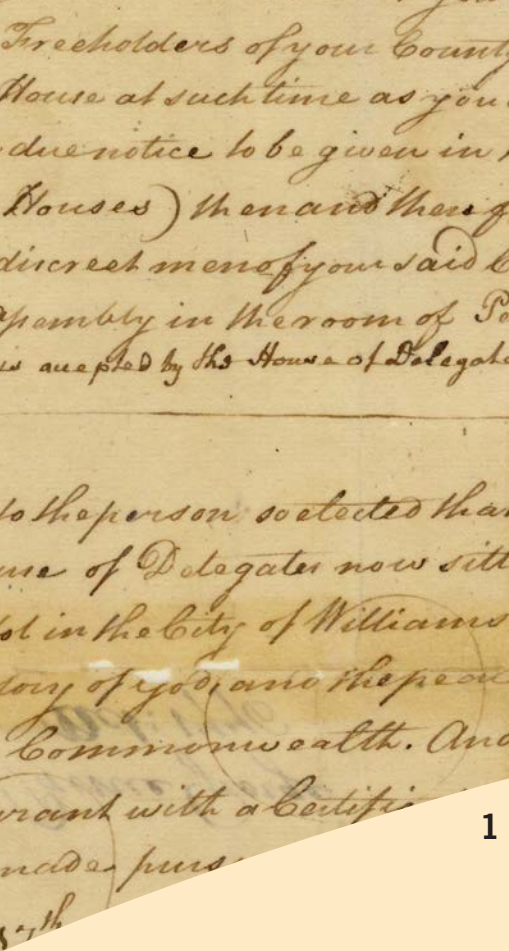 Freeholders of your County
House at such time as you
due notice to be given in
Houses) then and there
discreet men of your said
in the room of
accepted by the House of Delegate
to the person so elected that
use of Delegates now sitt
in the City of Williams
of god, and the peac
Commonwealth. And
rant with a Certific
made purs
17th
1